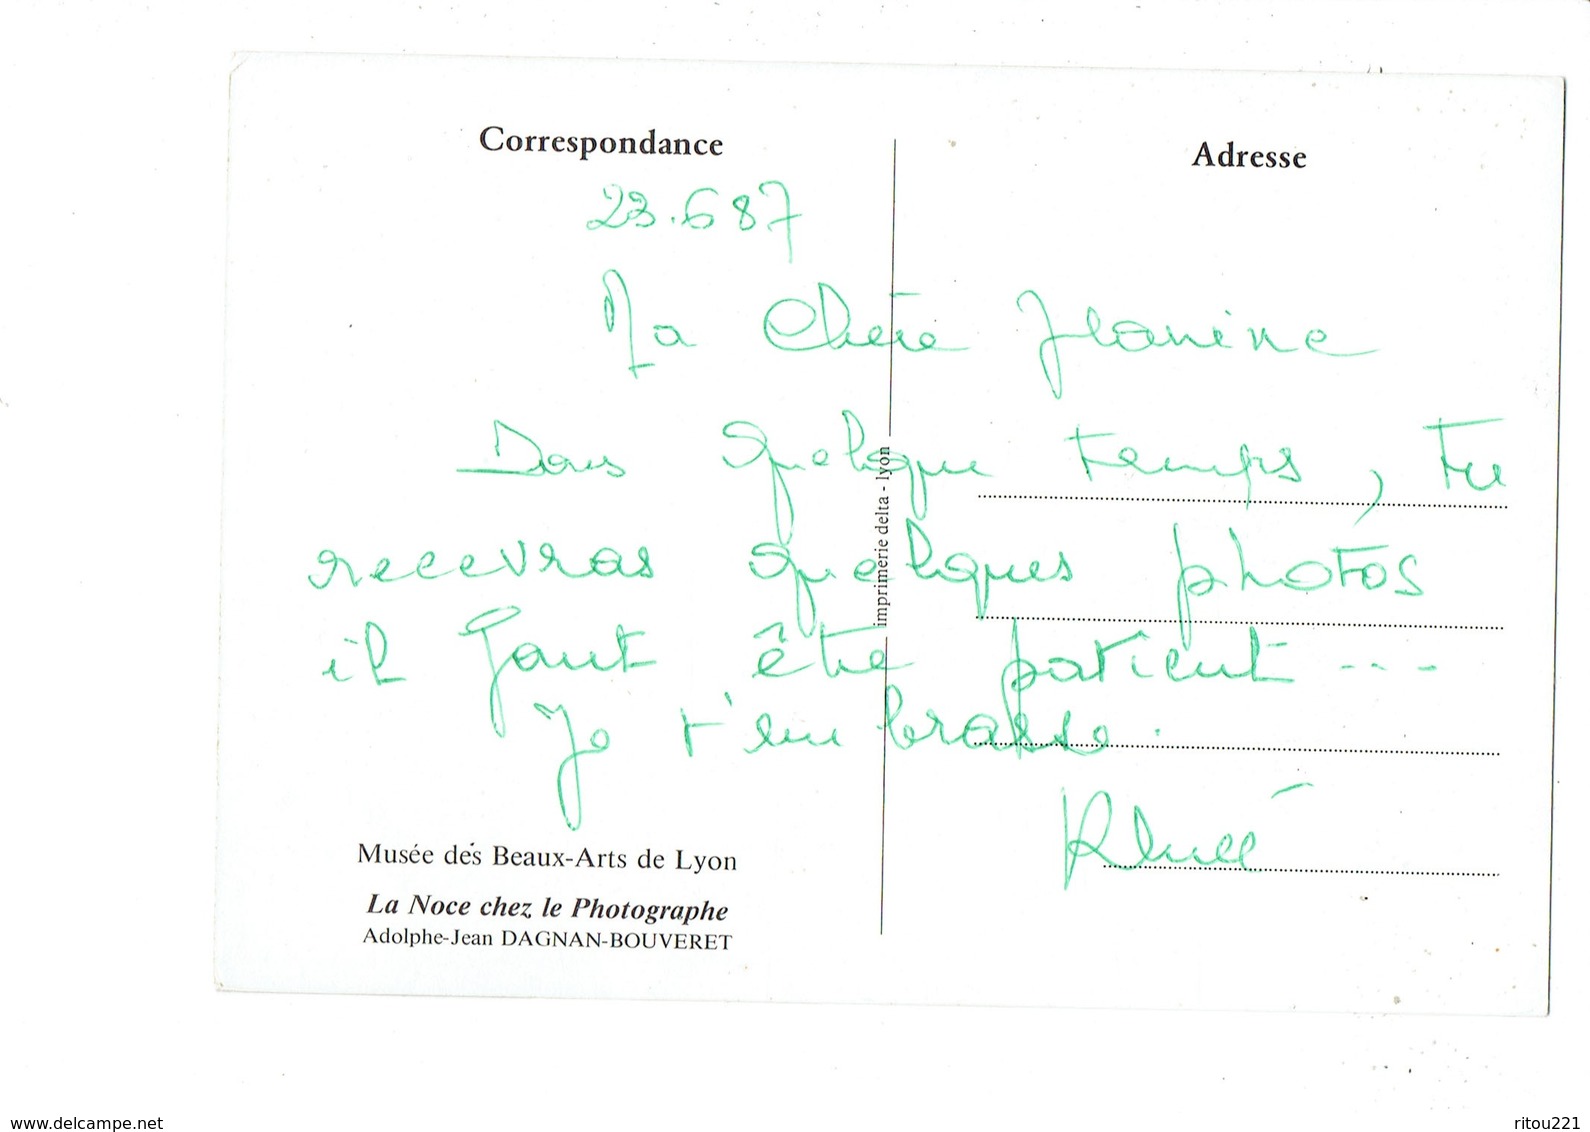 Correspondance
Adresse
23.687
Ma Chère Jeanine
Dans quelque temps, tu
recevras quelques photos
il faut être patient ---
Je t'embrasse.
Musée des Beaux-Arts de Lyon
La Noce chez le Photographe
Adolphe-Jean DAGNAN-BOUVERET
imprimerie delta - lyon
www.delcampe.net
ritou221